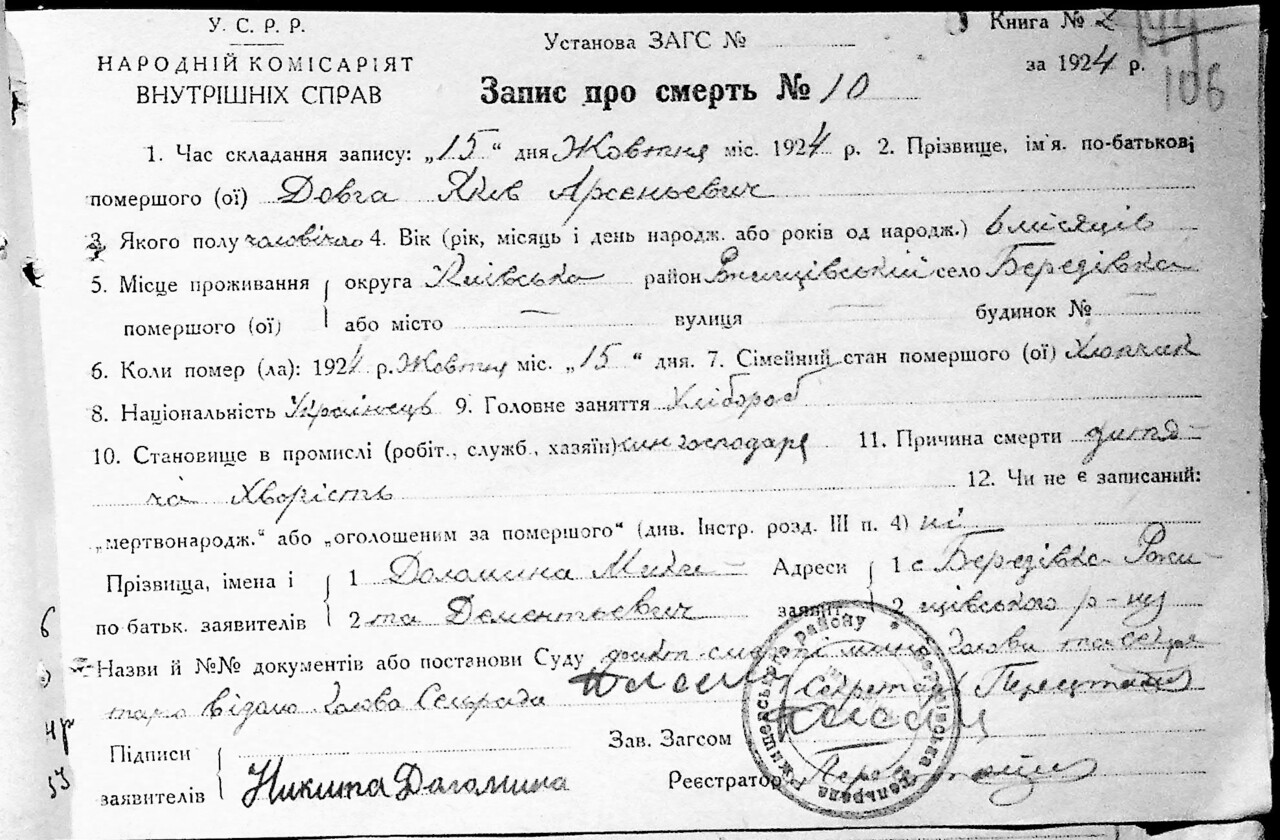 У. С. Р. Р.
НАРОДНІЙ КОМІСАРІЯТ
ВНУТРІШНІХ СПРАВ
Установа ЗАГС №
Книга № 2
за 1924 р.
106
Запис про смерть № 10
1. Час складання запису: „15“ дня Жовтня міс. 1924 р. 2. Прізвище, ім'я. по-батькові
помершого (ої) Довга Яків Арсеньевич
3 Якого полу чоловічого 4. Вік (рік, місяць і день народж. або років од народж.) 6 місяців
5. Місце проживання округа Київська район Ржищівський село Березівка
помершого (ої) або місто — вулиця — будинок № —
6. Коли помер (ла): 1924 р. Жовтня міс. „15“ дня. 7. Сімейний стан помершого (ої) Хлопчик
8. Національність Українець 9. Головне заняття Хлібороб
10. Становище в промислі (робіт., служб., хазяїн) син господаря 11. Причина смерти дитя-
ча Хворість 12. Чи не є записаний:
„мертвонародж.“ або „оголошеним за помершого“ (див. Інстр. розд. III п. 4) ні
Прізвища, імена і 1 Даломина Мики- Адреси 1 с Березівка Ржи-
по батьк. заявителів 2 та Дементьевич заявит. 2 щівського р-ну
Назви й №№ документів або постанови Суду факт смерті голови та секре
таря Видано Голова Сельрада Секретарь
Підписи
заявителів Никита Даламина
Зав. Загсом
Реєстратор